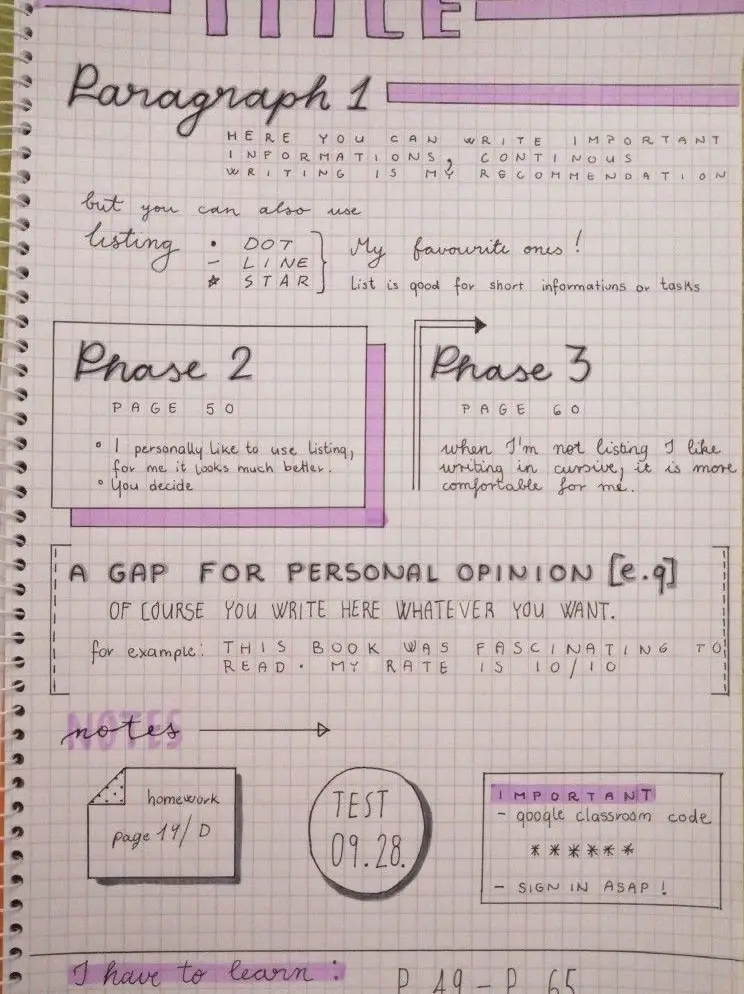 TITLE
Paragraph 1
HERE YOU CAN WRITE IMPORTANT
INFORMATIONS, CONTINOUS
WRITING IS MY RECOMMENDATION
but you can also use
listing
• DOT
- LINE
☆ STAR
My favourite ones!
List is good for short informations or tasks
Phase 2
PAGE 50
• I personally like to use listing,
for me it looks much better.
• You decide
Phase 3
PAGE 60
when I'm not listing I like
writing in cursive, it is more
comfortable for me.
A GAP FOR PERSONAL OPINION [e.g]
OF COURSE YOU WRITE HERE WHATEVER YOU WANT.
for example: THIS BOOK WAS FASCINATING TO
READ. MY RATE IS 10/10
NOTES
notes
homework
page 14/D
TEST
09.28.
IMPORTANT
- google classroom code
******
- SIGN IN ASAP!
I have to learn:
P 49 - P 65